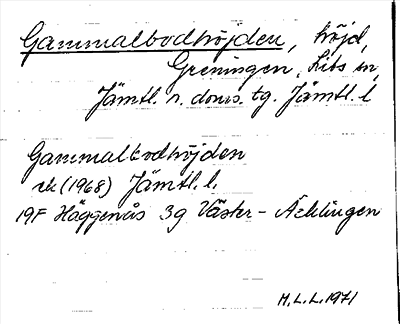 Gammalbodhöjden, höjd,
Greningen, Lits sn,
Jämtl. n. doms. tg. Jämtl. l
Gammalbodhöjden
ek (1968) Jämtl. l.
19F Häggenås 3g Väster-Äcklingen
M.L.L. 1971